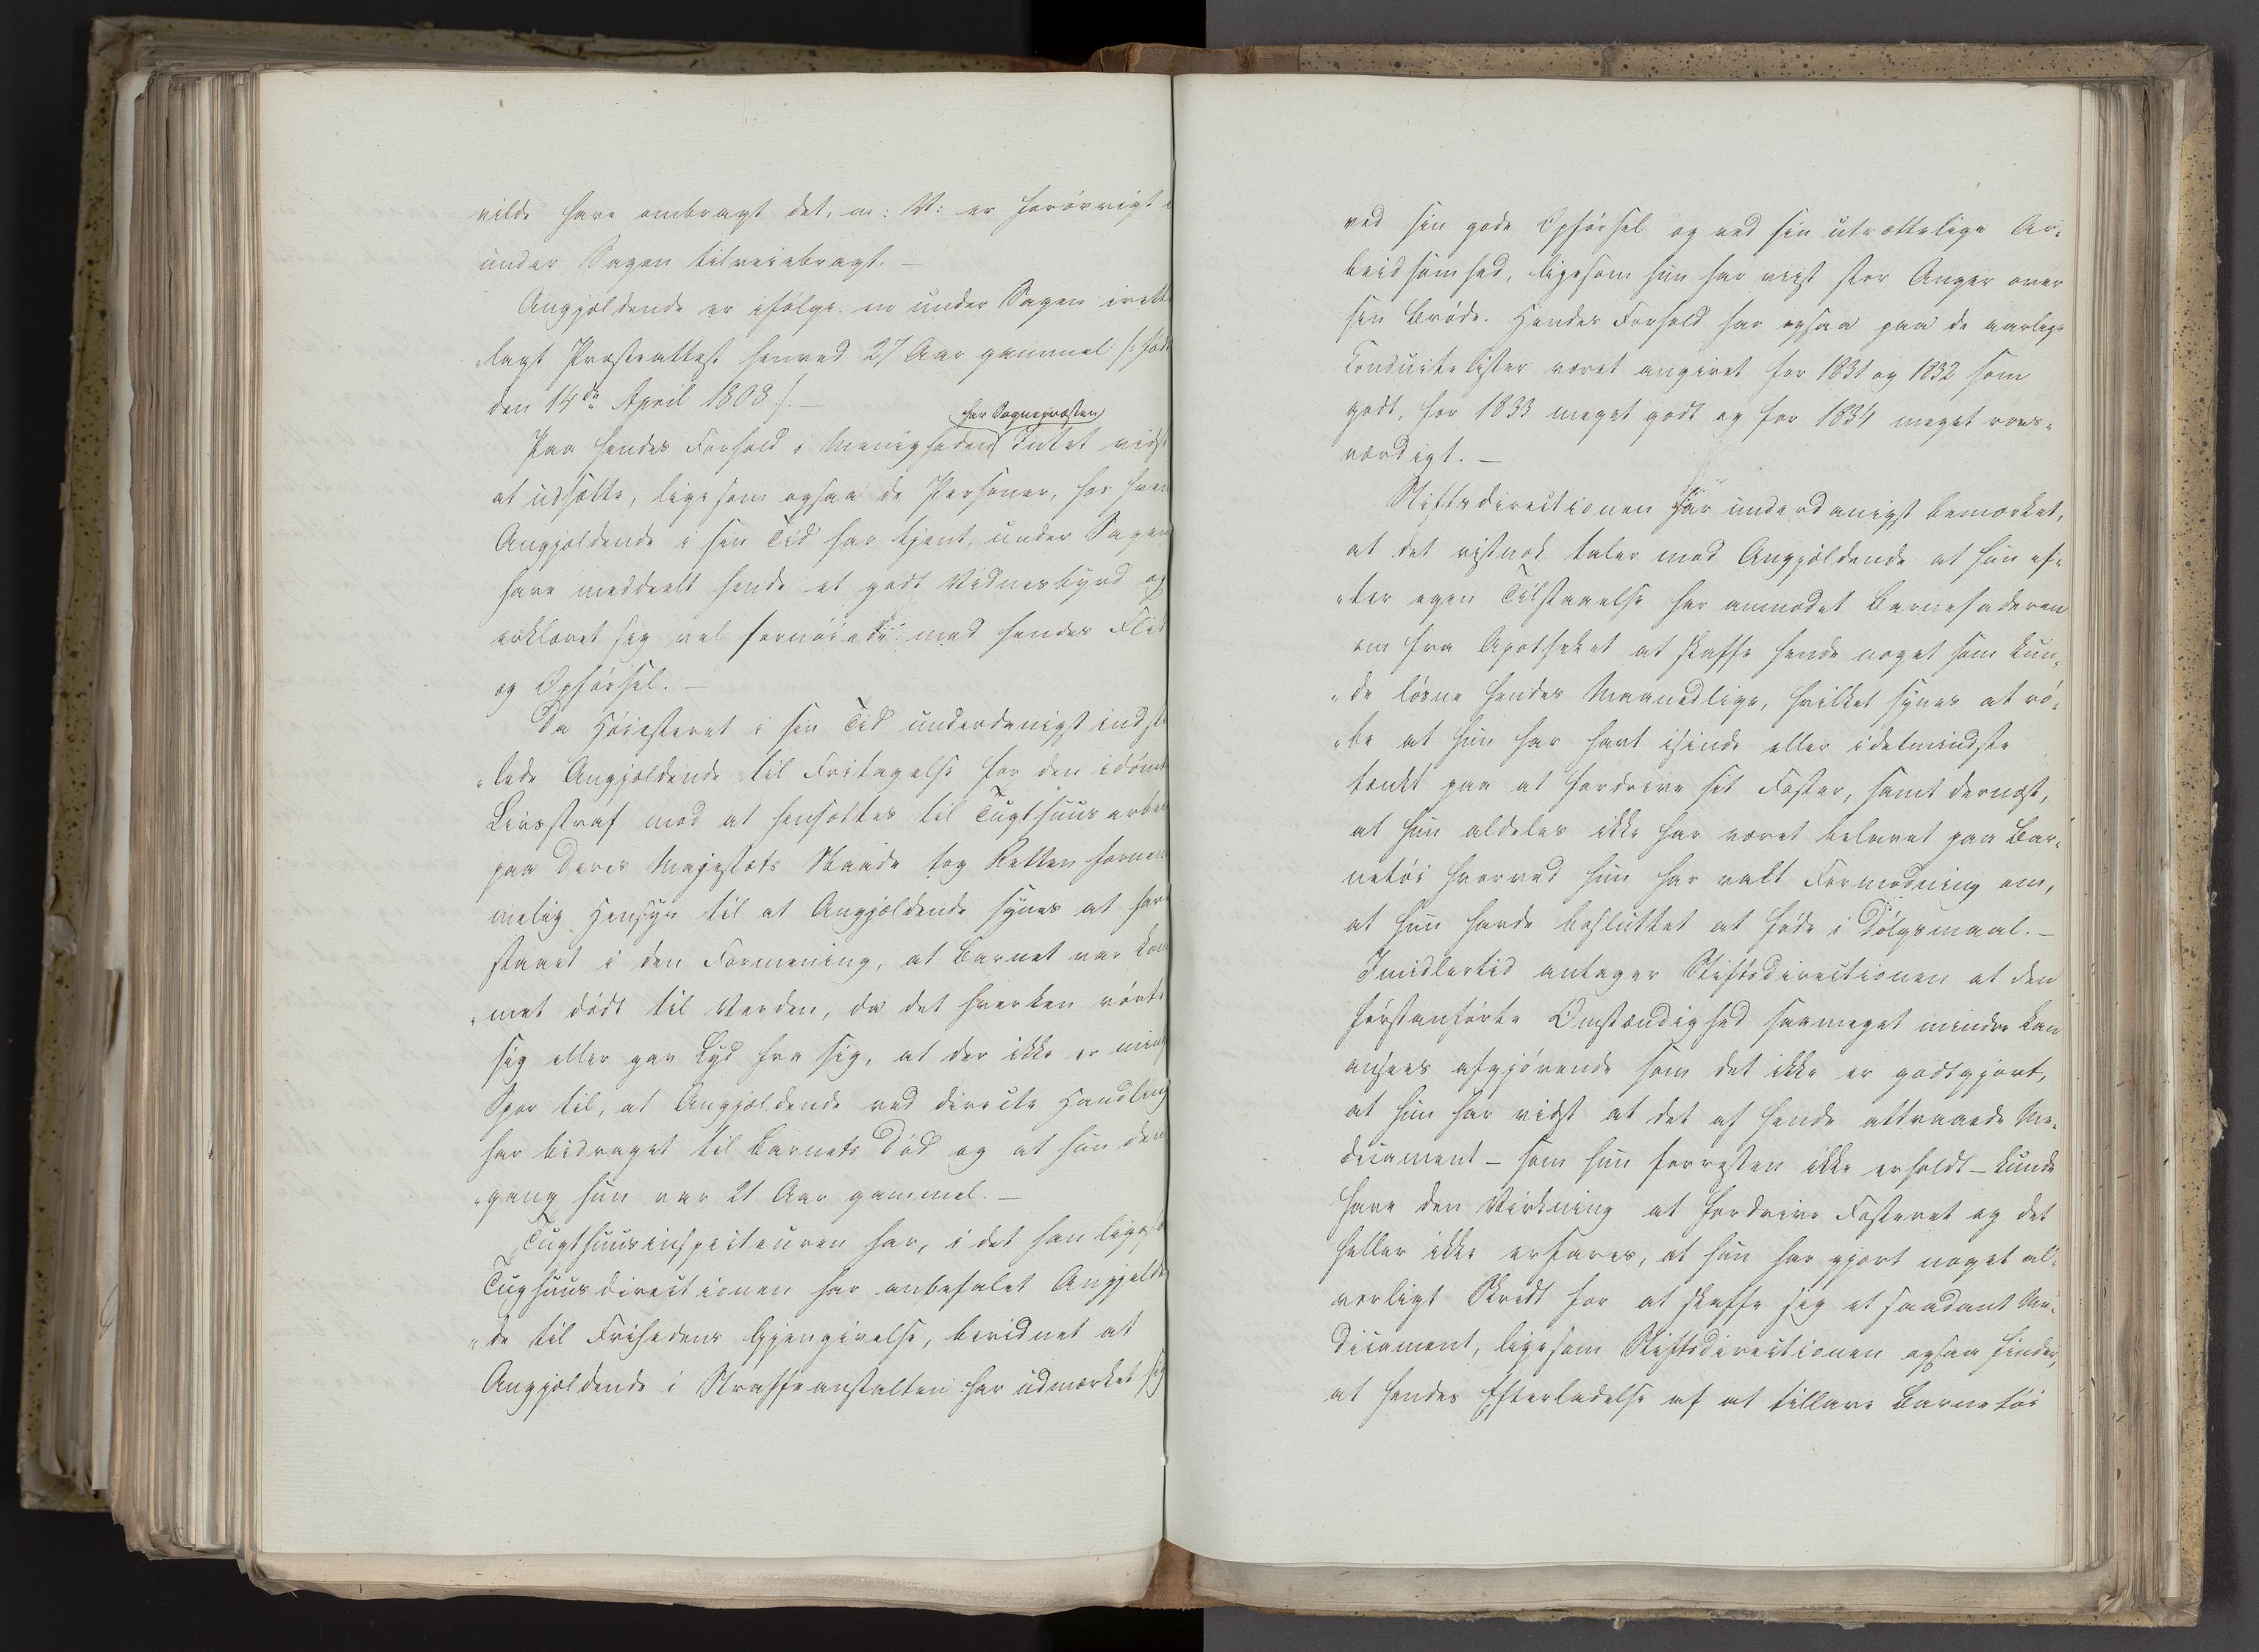 vilde have ombragt det, m: V: er forøvrigt
under Sagen tilveiebragt. –
Angjældende er ifølge en under Sagen irette
„lagt Præsteattest henved 27 Aar gammel /: født
den 14de April 1808 :/. –
har Sognepræsten
Paa hendes Forhold i Menigheden Intet vidst
at udsætte, ligesom ogsaa de Personer, hos hvem
Angjældende i sin Tid har tjent, under Sagen
have meddeelt hende et godt Vidnesbyrd og
erklæret sig vel fornøiede med hendes Flid
og Opførsel. –
Da Høiesteret i sin Tid underdanigst indstil
„lede Angjældende til Fritagelse for den idømte
Livsstraf mod at hensættes til Tugthuusarbeide
paa Deres Majestæts Naade tog Retten fornem
melig Hensyn til at Angjældende synes at have
staaet i den Formening, at Barnet var kom
„met dødt til Verden, da det hverken rørte
sig eller gav Lyd fra sig, at der ikke er mindste
Spor til, at Angjældende ved directe Handling
har bidraget til Barnets Død og at hun den
„gang hun var 21 Aar gammel. –
Tugthuusinspecteuren har, i det han ligesom
Tugthuusdirectionen har anbefalet Angjælden
„de til Frihedens Gjengivelse, bevidnet at
Angjældende i Straffeanstalten har udmærket sig
ved sin gode Opførsel og ved sin utrættelige Ar„
beidsomhed, ligesom hun har viist stor Anger over
sin Brøde. Hendes Forhold har ogsaa paa de aarlige
Conduitelister været angivet for 1831 og 1832 som
godt, for 1833 meget godt og for 1834 meget roes„
værdigt. –
Stiftsdirectionen har underdanigst bemærket,
at det vistnok taler mod Angjældende at hun ef„
„ter egen Tilstaaelse har anmodet Barnefaderen
om fra Apotheket at skaffe hende noget som kun„
„de løsne hendes Maanedlige, hvilket synes at rø„
„be at hun har havt isinde eller idetmindste
tænkt paa at fordrive sit Foster, samt dernæst,
at hun aldeles ikke har været belavet paa Bar„
netøi hvorved hun har vakt Formodning om,
at hun havde besluttet at føde i Dølgsmaal. –
Imidlertid antager Stiftsdirectionen at den
førstanførte Omstændighed saameget mindre kan
ansees afgjørende som det ikke er godtgjort,
at hun har vidst at det af hende attraaede Me„
dicament – som hun forresten ikke erholdt – kunde
have den Virkning at fordrive Fosteret og det
heller ikke erfares, at hun har gjort noget al„
vorligt Skridt for at skaffe sig et saadant Me„
dicament, ligesom Stiftsdirectionen ogsaa finder,
at hendes Efterladelse af at tillave Barnetøi